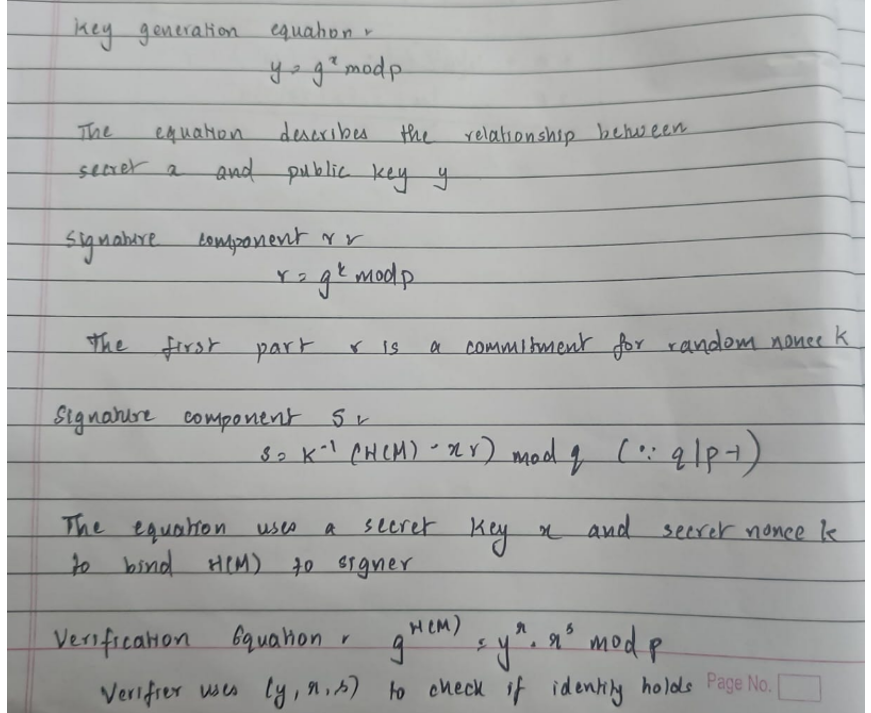 Key generation equation :
y = g^x mod p
The equation describes the relationship between
secret x and public key y
Signature component r :
r = g^k mod p
The first part r is a commitment for random nonce k
Signature component S :
s = k^-1 (H(M) - xr) mod q (∵ q | p-1)
The equation uses a secret key x and secret nonce k
to bind H(M) to signer
Verification Equation : g^H(M) = y^r . r^s mod p
Verifier uses (y, r, s) to check if identity holds
Page No.